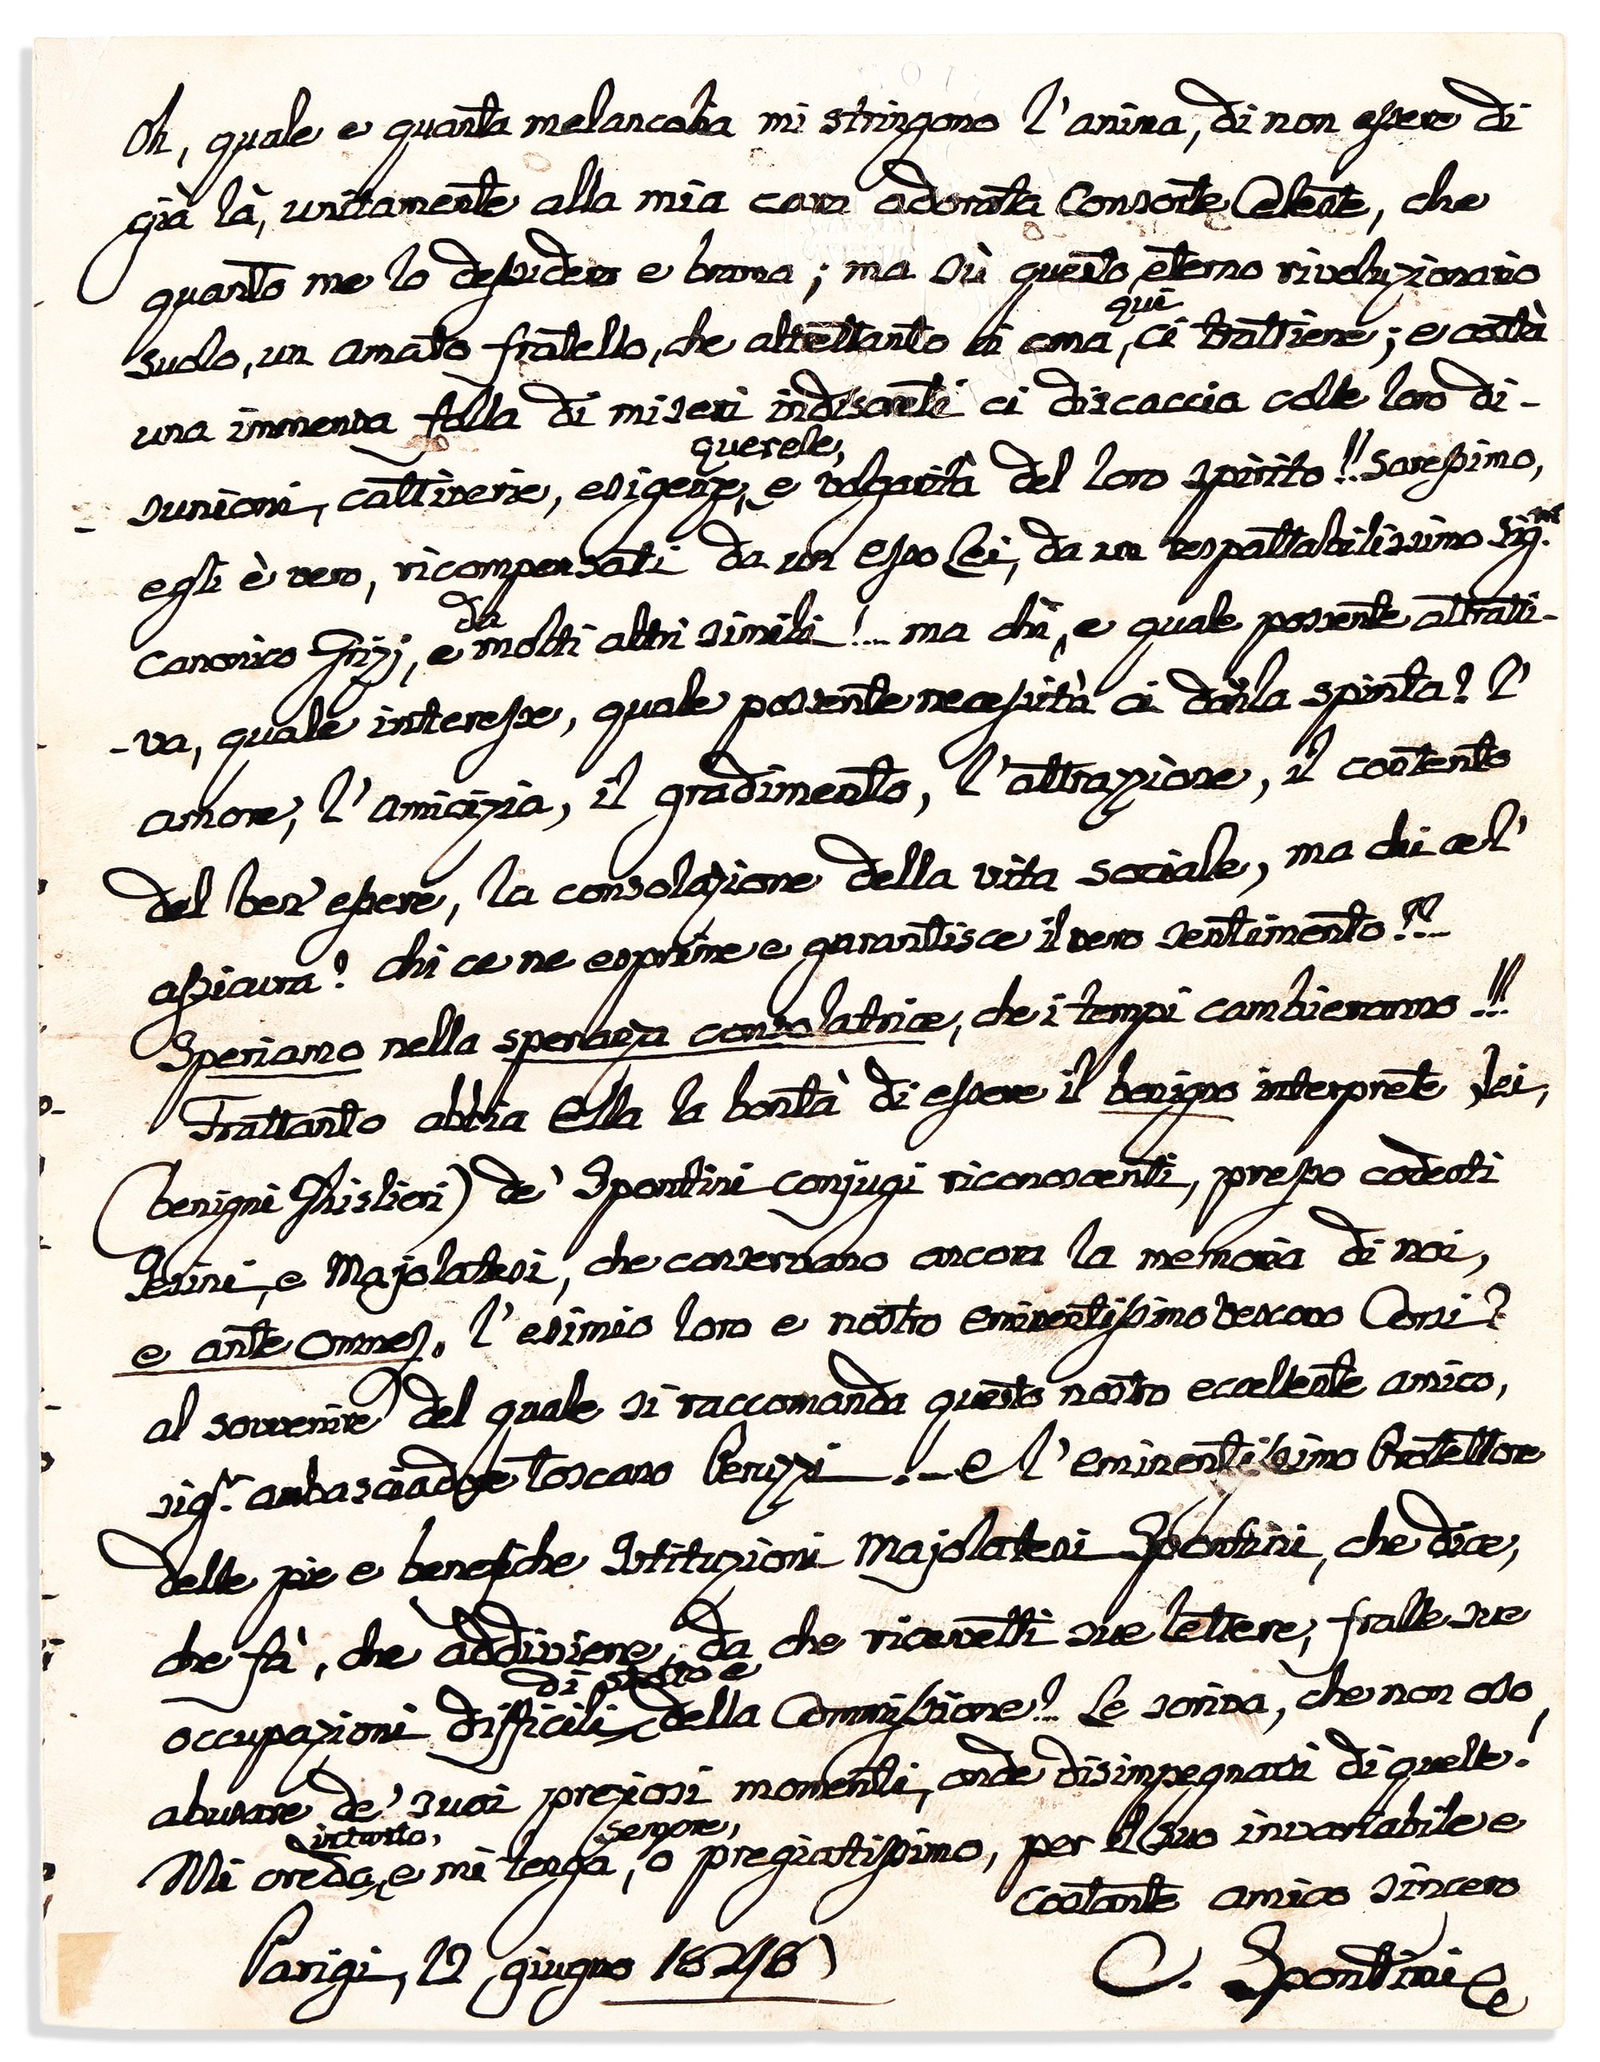 Oh, quale e quanta melancolia mi stringono l'anima, di non essere di
già là, unitamente alla mia cara adorata Consorte Celeste, che
quanto me lo desidera e brama; ma sù questo eterno rivoluzionario
qui
suolo, un amato fratello, che altrettanto ci ama, ci trattiene; e costà
una immensa folla di miseri indiscreti ci discaccia colle loro di-
querele,
sunioni, cattiverie, esigenze, e volgarità del loro spirito!! Saressimo,
egli è vero, ricompensati da un Esso Lei, da un rispettabilissimo Sig.re
da
Canonico Grizj, e molti altri simili!... ma chì, e quale possente attratti-
-va, quale interesse, quale possente necessità ci dà la spinta? l'
amore, l'amicizia, il gradimento, l'attrazione, il contento
del ben' essere, la consolazione della vita sociale, ma chi ce l'
assicura? chi ce ne esprime e garantisce il vero sentimento!?...
Speriamo nella speranza consolatrice, che i tempi cambieranno!!!
Frattanto abbia Ella la bontà di essere il benigno interprete Lei,
(benigni Ghislieri) de' Spontini conjugi riconoscenti, presso codesti
Jesini, e Majolatesi, che conservano ancora la memoria di noi,
e ante omnes. l'esimio loro e nostro eminentissimo Vescovo Corsi?
al sovvenire del quale si raccomanda questo nostro eccellente amico,
sigr. ambasciadore toscano Peruzzi!... e l'eminentissimo Protettore
delle pie e benefiche Istituzioni Majolatesi Spontini, che dice,
che fà, che addiviene, da che ricevetti sue lettere, fralle sue
di stato e
occupazioni difficili, della Commissione?.. Le scriva, che non oso,
abusare de' suoi preziosi momenti, onde disimpegnarsi di quelle!
intanto, sempre,
Mi creda, e mi tenga, o pregiatissimo, per il Suo invariabile e
costante amico sincero
Parigi, 12 giugno 1848
C. Spontini